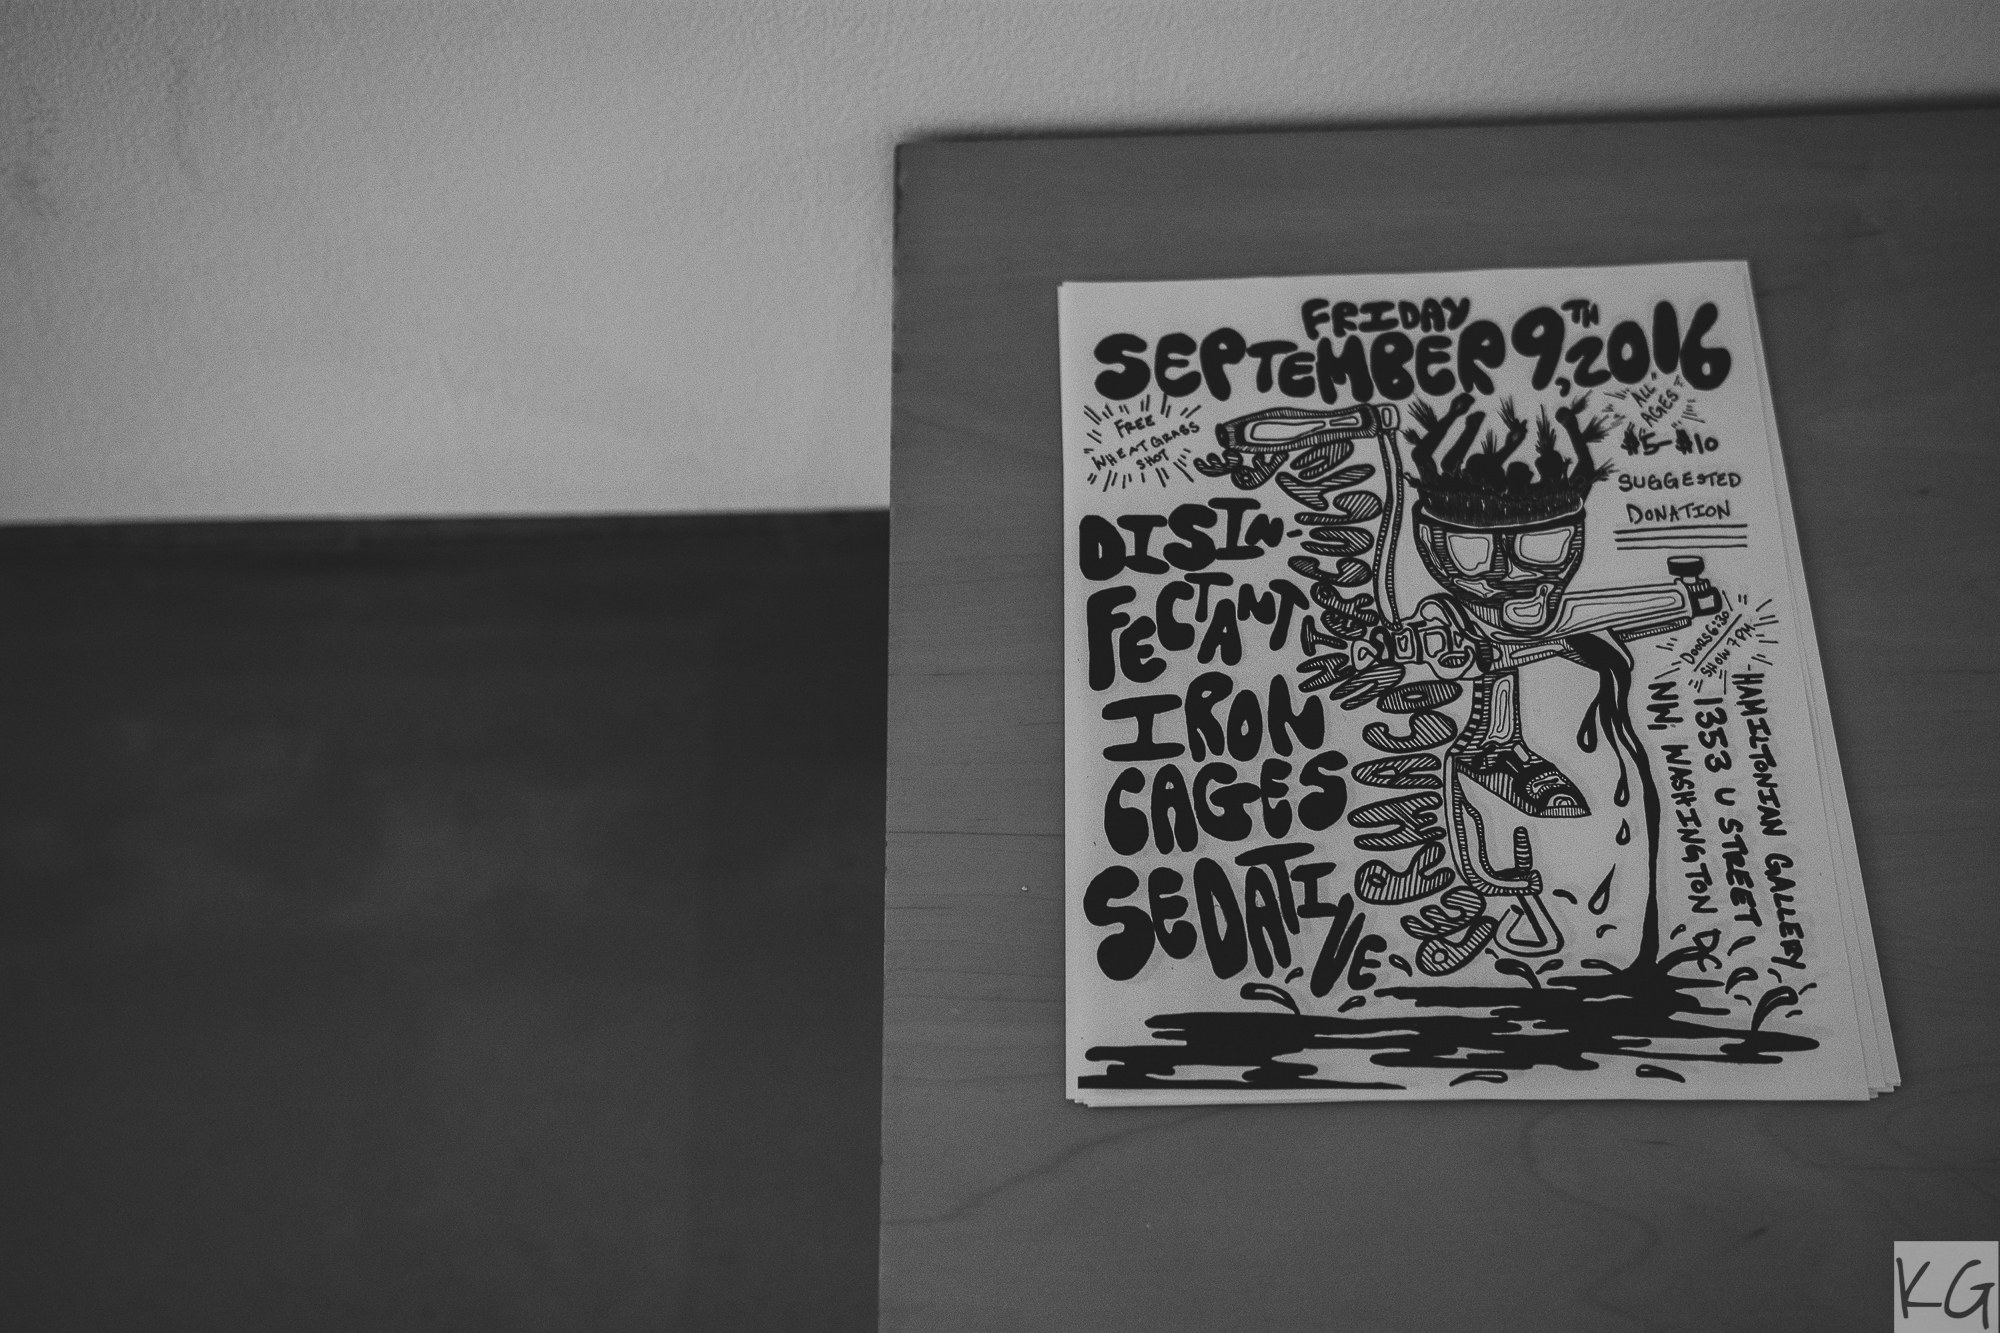 FRIDAY
SEPTEMBER 9TH, 2016
FREE
WHEAT GRASS
SHOT
"ALL
AGES"
$5-$10
SUGGESTED
DONATION
DISIN-
FECTANT
IRON
CAGES
SEDATIVE
DOORS 6:30
SHOW 7PM
HAMILTONIAN GALLERY
1353 U STREET
NW, WASHINGTON DC
KG